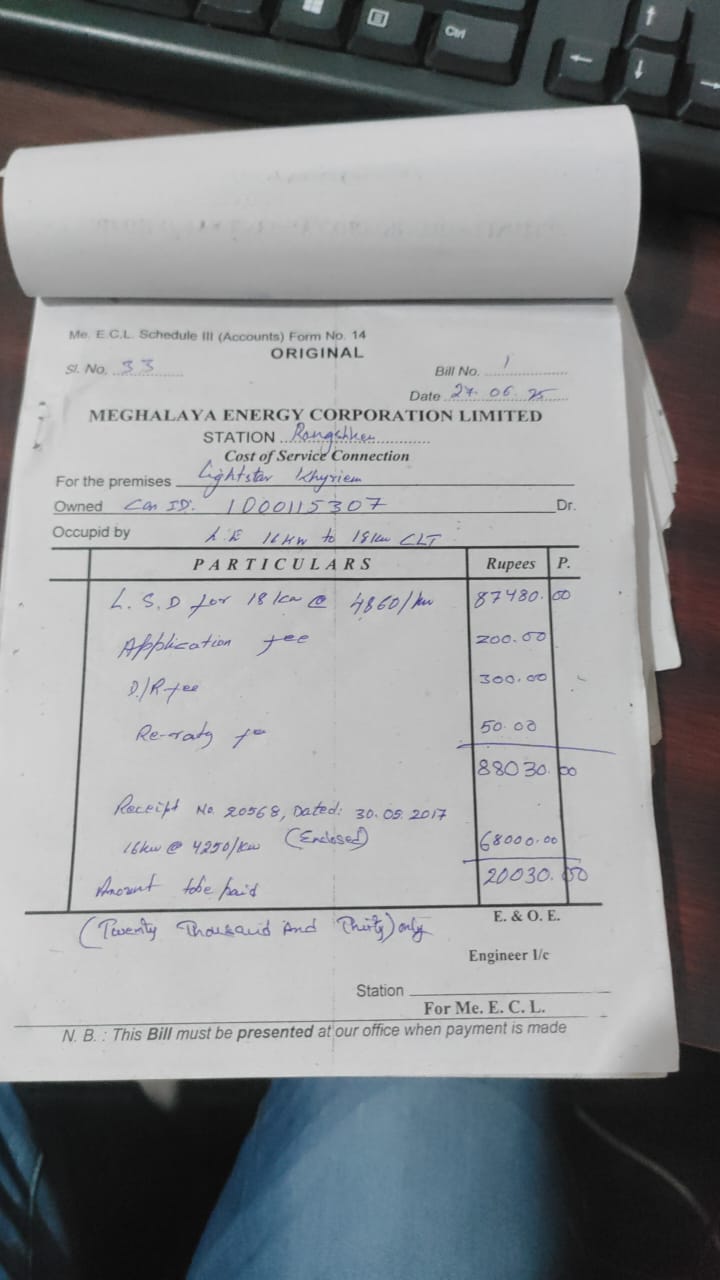 Ctrl
Me. E.C.L. Schedule III (Accounts) Form No. 14
ORIGINAL
Sl. No. 33 Bill No. 1
Date 27.06.25
MEGHALAYA ENERGY CORPORATION LIMITED
STATION
Cost of Service Connection
For the premises Lightstar Khyriem
Owned Con ID: 1000115307 Dr.
Occupid by L.E 16kw to 18kw CLT
PARTICULARS Rupees P.
L.S.D for 18 kw @ 4860/kw 87480.00
Application fee 200.00
D/R fee 300.00
50.00
88030.00
Receipt No. 20568, Dated: 30.05.2017
16kw @ 4250/kw (Enclosed) 68000.00
Amount tobe paid 20030.00
(Twenty Thousand And Thirty) only
E. & O. E.
Engineer I/c
Station
For Me. E. C. L.
N. B. : This Bill must be presented at our office when payment is made